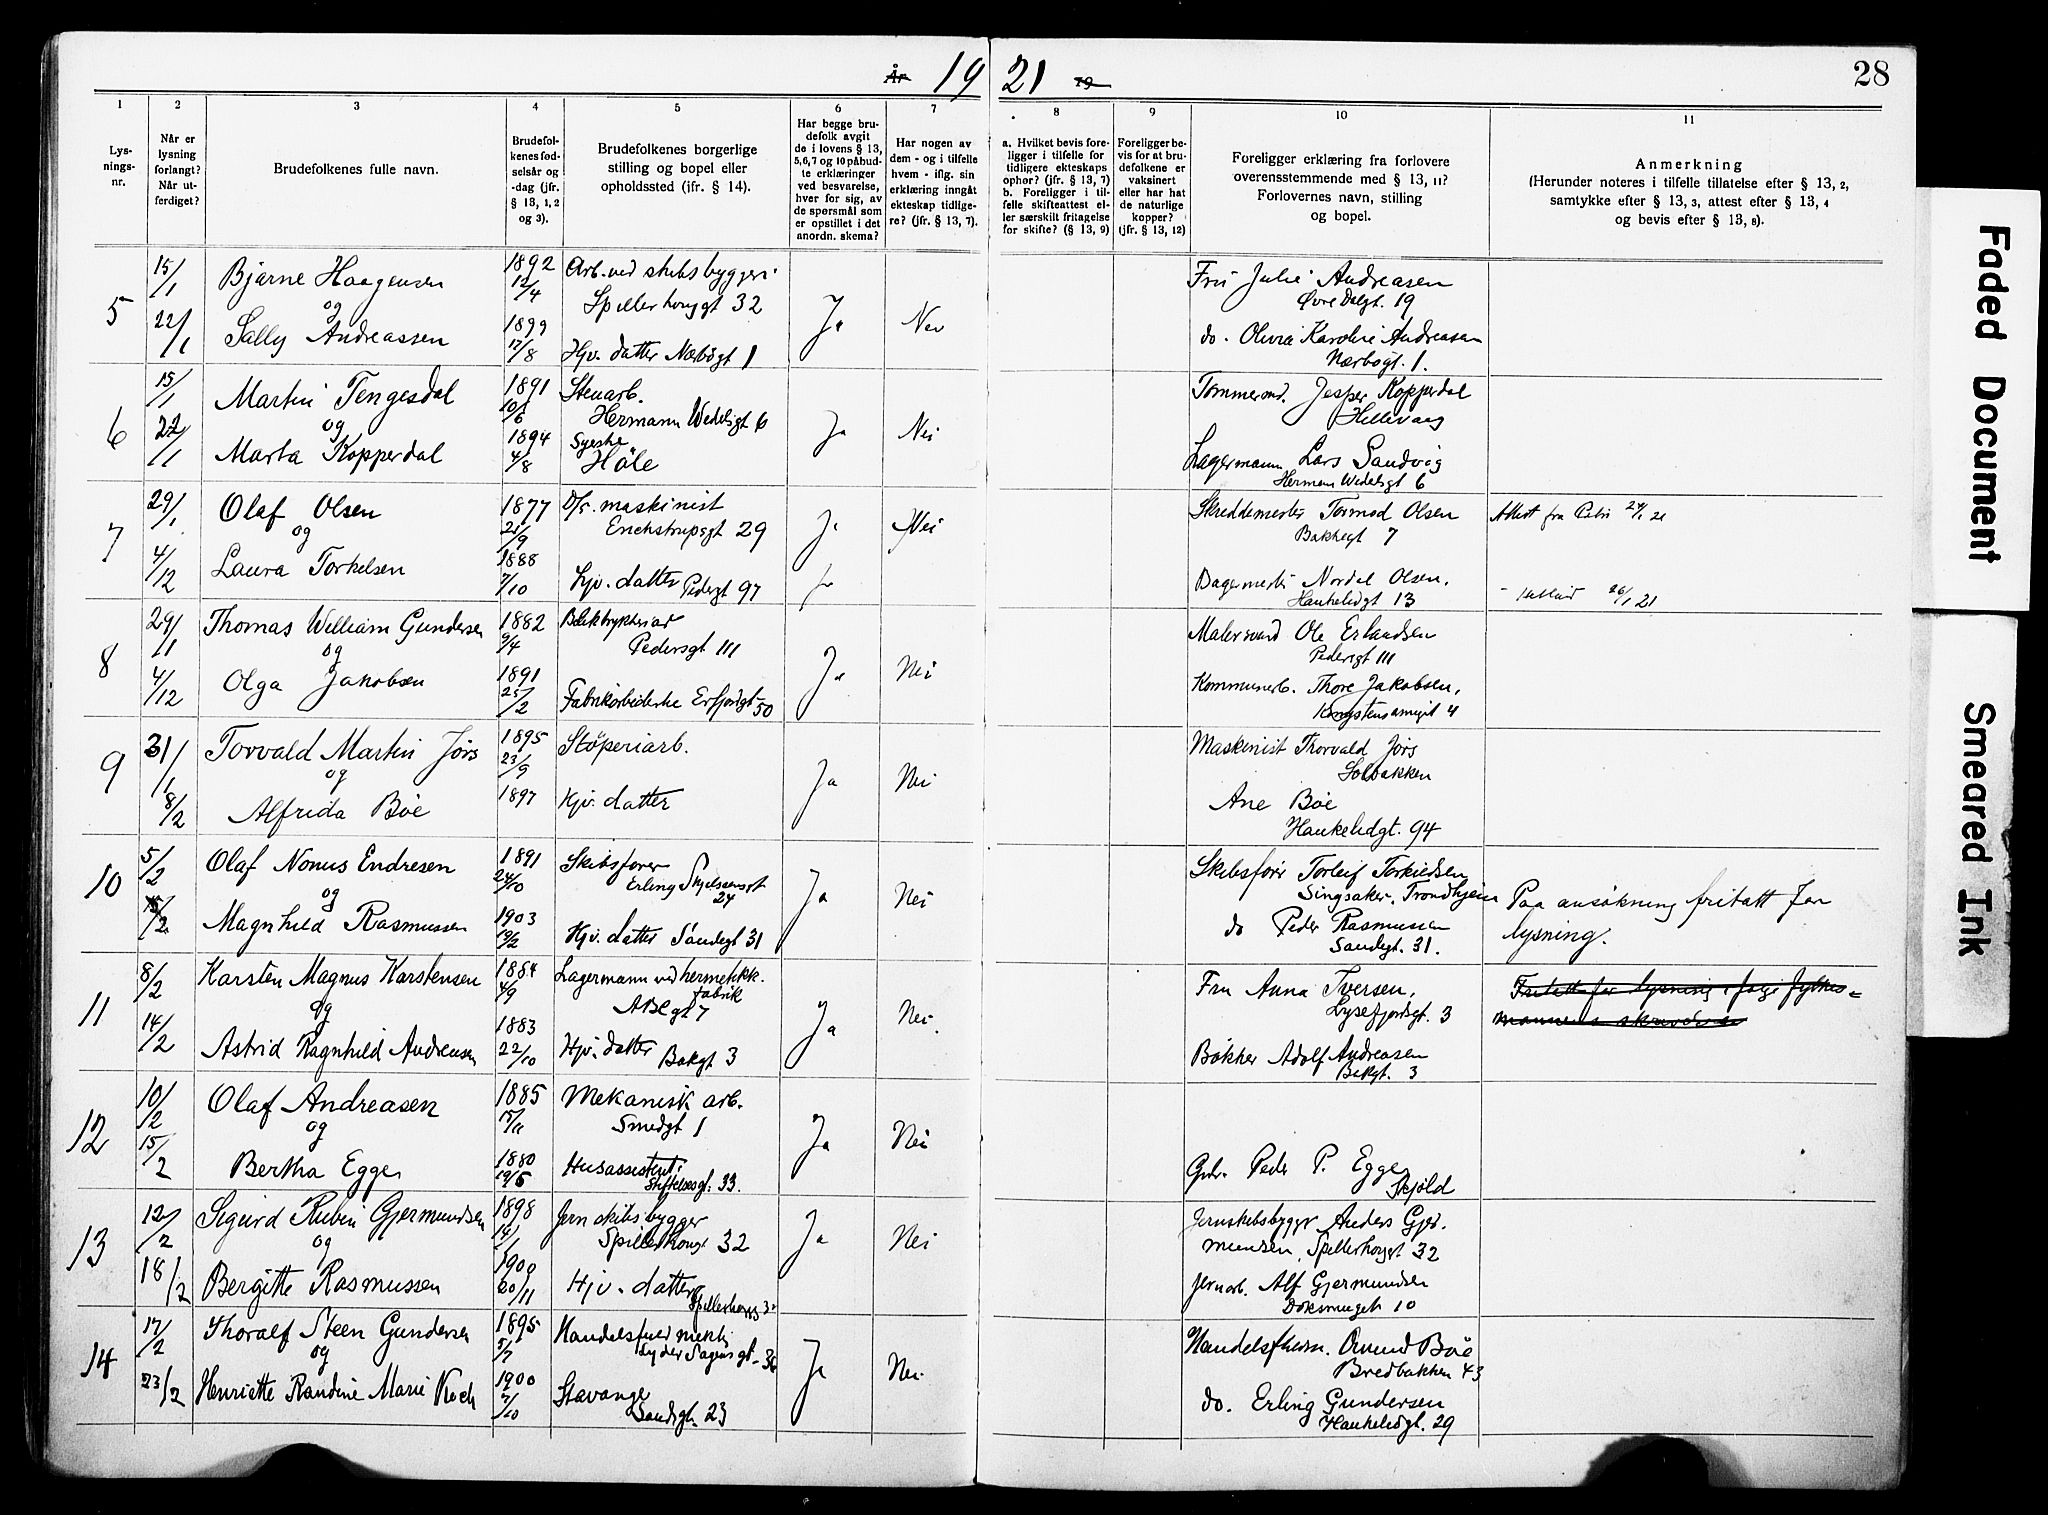 År 19 21 19
28
1
2
3
4
5
6
7
8
9
10
11
Lys-
nings-
nr.
Når er
lysning
forlangt?
Når ut-
ferdiget?
Brudefolkenes fulle navn.
Brudefol-
kenes fød-
selsår og
-dag (jfr.
§ 13, 1, 2
og 3).
Brudefolkenes borgerlige
stilling og bopel eller
opholdssted (jfr. § 14).
Har begge bru-
defolk avgit
de i lovens § 13,
5, 6, 7 og 10 påbud-
te erklæringer
ved besvarelse,
hver for sig, av
de spørsmål som
er opstillet i det
anordn. skema?
Har nogen av
dem - og i tilfelle
hvem - iflg. sin
erklæring inngåt
ekteskap tidlige-
re? (jfr. § 13, 7).
a. Hvilket bevis fore-
ligger i tilfelle for
tidligere ekteskaps
ophør? (jfr. § 13, 7)
b. Foreligger i til-
felle skifteattest el-
ler særskilt fritagelse
for skifte? (§ 13, 9)
Foreligger be-
vis for at bru-
defolkene er
vaksinert
eller har hat
de naturlige
kopper?
(jfr. § 13, 12)
Foreligger erklæring fra forlovere
overensstemmende med § 13, 11?
Forlovernes navn, stilling
og bopel.
Anmerkning
(Herunder noteres i tilfelle tillatelse efter § 13, 2,
samtykke efter § 13, 3, attest efter § 13, 4
og bevis efter § 13, 8).
5
15/1
22/1
Bjarne Haagensen
og
Sally Andreassen
1892
12/4
1899
17/8
Arb. ved skibsbyggeri
Spillerhouggt 32
Hjv. datter Nærbøgt 1
Ja
Nei
Fru Julie Andreasen
Øvre Dalgt. 19
do. Olivia Karoline Andreasen
Nærbøgt. 1.
6
15/1
22/1
Martin Tengesdal
og
Marta Kopperdal
1891
10/6
1894
4/8
Stenarb.
Hermann Wedelsgt 6
Syerske
Høle
Ja
Nei
Tømmermd. Jesper Kopperdal
Hellevaag
Lagermann Lars Sandvig
Herman Wedelsgt 6
7
29/1
4/12
Olaf Olsen
og
Laura Torkelsen
1877
21/9
1888
7/10
D/s. maskinist
Erichstrupsgt 29
Hjv. datter Pedersgt 97
Ja
Nei
Skreddemester Tormod Olsen
Bakkegt 7
Bagermester Nordal Olsen.
Haukeligt 13
Attest fra Petri 24/1 21
26/1 21
8
29/1
4/12
Thomas William Gundersen
og
Olga Jakobsen
1882
9/4
1891
25/2
Blektrykkeriar
Pedersgt 111
Fabrikarbeiderske Erfjordgt 50
Ja
Nei
Malersvend Ole Erlandsen
Pedersgt 111
Kommunearb. Thore Jakobsen,
Kongstensamsgt 4
9
31/1
8/2
Torvald Martin Jørs
og
Alfrida Bøe
1895
23/9
1897
Støperiarb.
Hjv. datter
Ja
Nei
Maskinist Thorvald Jørs
Solbakken
Ane Bøe
Haukeligt. 94
10
5/2
15/2
Olaf Nonus Endresen
og
Magnhild Rasmussen
1891
24/10
1903
19/2
Skibsfører
Erling Skjalssonsgt
24
Hjv. datter Sandegt 31
Ja
Nei
Skibsfører Torleif Torkildsen
Singsaker, Trondhjem
do Peder Rasmussen
Sandegt. 31.
Paa ansøkning fritatt for
lysning.
11
8/2
14/2
Karsten Magnus Karstensen
og
Astrid Ragnhild Andreasen
1884
4/9
1883
22/10
Lagermann ved hermetikk.
fabrik
ABC gt 7
Hjv. datter Bakgt 3
Ja
Nei.
Fru Anna Iversen,
Lysefjordgt. 3
Bøkker Adolf Andreasen
Bakgt. 3
Fritatt for lysning i følge fylkes-
mannens skrivelse
12
10/2
15/2
Olaf Andreasen
og
Bertha Egge
1885
15/11
1880
19/5
Mekanisk arb.
Smedgt 1
Husassistent
Stiftelsesgt. 33.
Ja
Nei
Gdr. Peder P. Egge
Skjold
13
12/2
18/2
Sigurd Rubin Gjermundsen
og
Bergitte Rasmussen
1898
14/1
1900
20/11
Jernskibsbygger
Spillerhougt 32
Hjv. datter
Spillerhougs 32
Ja
Nei
Jernskibsbygger Anders Gjer-
mundsen, Spillerhougt 32
Jernarb. Alf Gjermundsen
Doksmuget 10
14
17/2
23/2
Thoralf Steen Gundersen
og
Henriette Randine Marie Koch
1895
5/7
1900
7/10
Handelsfuldmekt.
Lyder Sagensgt. 36
Stavanger
Sandsgt. 23
Ja
Nei
Handelsfuldm. Ømund Bøe
Bredbakken 43
do. Erling Gundersen
Haukeligt. 29
Faded Document
Smeared Ink